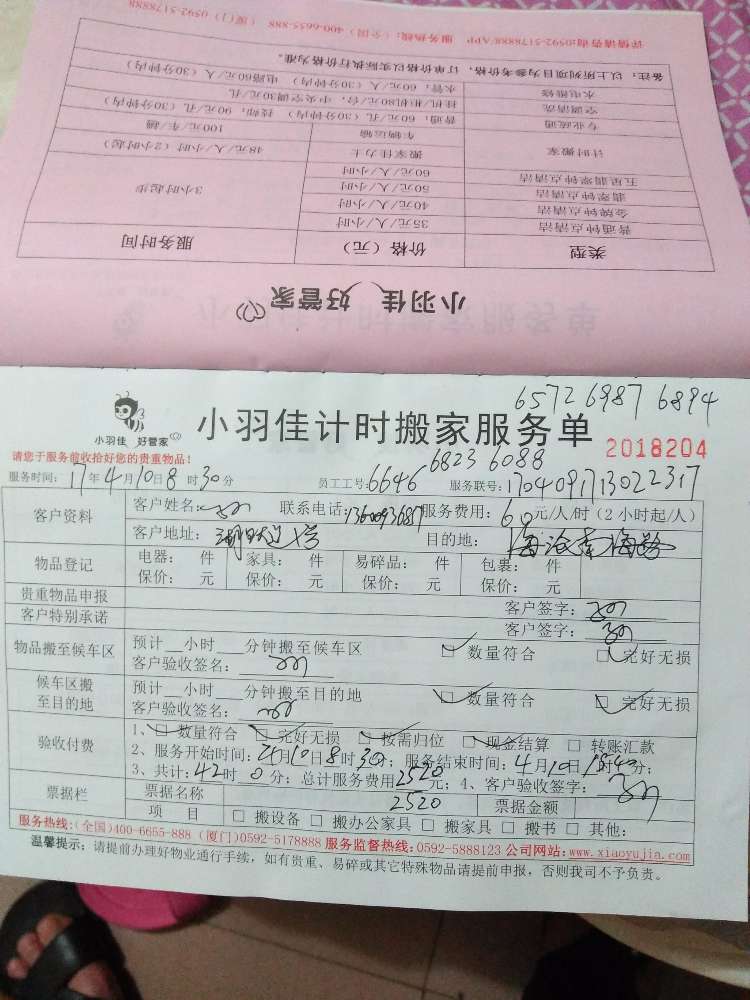 小羽佳 好管家
类型 价格（元） 服务时间
普通钟点清洁 35元/人/小时
金牌钟点清洁 40元/人/小时 3小时起步
翡翠钟点清洁 50元/人/小时
五星翡翠钟点清洁 60元/人/小时
计时搬家 搬家佳力士 48元/人/小时（2小时起）
车辆运输 100元/车/趟
专业疏通 普通，60元/孔（30分钟内） 技师，90元/孔（30分钟内）
空调清洗 挂机/柜机80元/台，中央空调30元/孔
水电维修 水管，60元/人（30分钟内） 电路60元/人（30分钟内）
备注：以上所列项目为参考价格，订单价格以实际执行价格为准。
详情请咨询:0592-5178888/APP 服务热线：（全国）400-6655-888 （厦门）0592-5178888
6572 6987 6894
小羽佳 好管家
小羽佳计时搬家服务单
2018204
6823 6088
请您于服务前收拾好您的贵重物品！
服务时间：17年4月10日8时30分 员工工号:6646 服务联号:1704091713022317
客户资料 客户姓名： 联系电话： 服务费用：60元/人/时（2小时起/人）
客户地址： 目的地：海沧南海路
物品登记 电器： 件 家具： 件 易碎品： 件 包裹： 件
保价： 元 保价： 元 保价： 元 保价： 元
贵重物品申报 客户签字：
客户特别承诺 客户签字：
物品搬至候车区 预计__小时___分钟搬至候车区 □ 数量符合 □ 完好无损
客户验收签名：
候车区搬至目的地 预计__小时___分钟搬至目的地 □ 数量符合 □ 完好无损
客户验收签名：
验收付费 1、□ 数量符合 □ 完好无损 □ 按需归位 □ 现金结算 □ 转账汇款
2、服务开始时间：4月10日8时30分；服务结束时间：4月10日15时40分；
3、共计：42时0分；总计服务费用2520元；4、客户验收签字：
票据栏 票据名称 2520 票据金额
项 目 □ 搬设备 □ 搬办公家具 □ 搬家具 □ 搬书 □ 其他：
服务热线:(全国)400-6655-888 (厦门)0592-5178888 服务监督热线:0592-5888123 公司网站:www.xiaoyujia.com
温馨提示：请提前办理好物业通行手续，如有贵重、易碎或其它特殊物品请提前申报，否则我司不予负责。